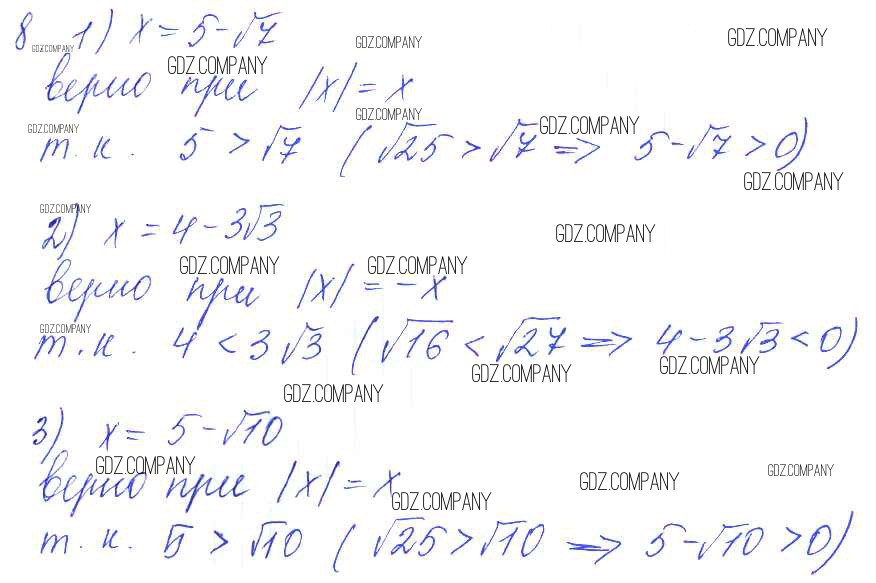 8 1) x = 5-√7
GDZ.COMPANY GDZ.COMPANY GDZ.COMPANY
GDZ.COMPANY
верно при |x| = x
GDZ.COMPANY
GDZ.COMPANY GDZ.COMPANY
т.к. 5 > √7 (√25 > √7 => 5-√7 > 0)
GDZ.COMPANY
GDZ.COMPANY
2) x = 4-3√3
GDZ.COMPANY
GDZ.COMPANY GDZ.COMPANY
верно при |x| = -x
GDZ.COMPANY
т.к. 4 < 3√3 (√16 < √27 => 4-3√3 < 0)
GDZ.COMPANY GDZ.COMPANY
GDZ.COMPANY
3) x = 5-√10
GDZ.COMPANY GDZ.COMPANY
верно при |x| = x
GDZ.COMPANY GDZ.COMPANY
т.к. 5 > √10 (√25 > √10 => 5-√10 > 0)